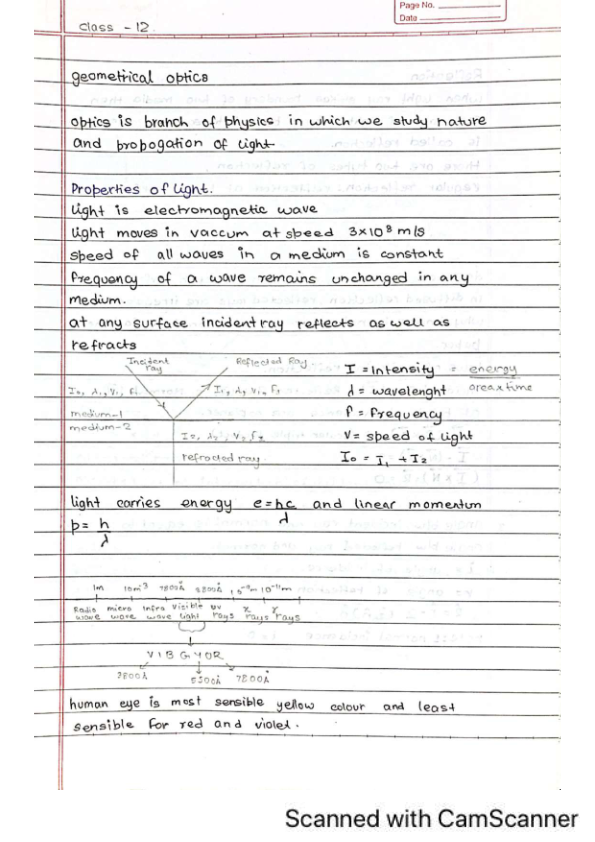 Page No.
Date
Class - 12
geometrical optics
optics is branch of physics in which we study nature
and propogation of light
Properties of light.
light is electromagnetic wave
light moves in vaccum at speed 3×10⁸ m/s
speed of all waves in a medium is constant
frequency of a wave remains unchanged in any
medium.
at any surface incident ray reflects as well as
refracts
Incident ray Reflected Ray I = Intensity = energy / area x time
I₀, λ₁, V₁, F₁ I₁, λ₁ V₁, F₁ λ = wavelenght
medium-1 f = frequency
medium-2 V = speed of light
I₂, λ₂, V₂ f₂
refracted ray I₀ = I₁ + I₂
light carries energy e = hc/λ and linear momentum
p = h/λ
1m
Radio wave micro wave Infra wave visible light UV rays X rays γ rays
VIBGYOR
5500Å 7800Å
human eye is most sensible yellow colour and least
sensible for red and violet.
Scanned with CamScanner